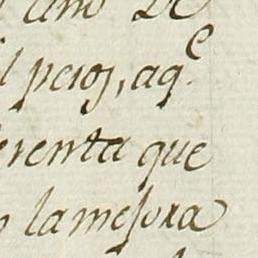 año De
l pesos, aq.e
erenta que
o lamesora